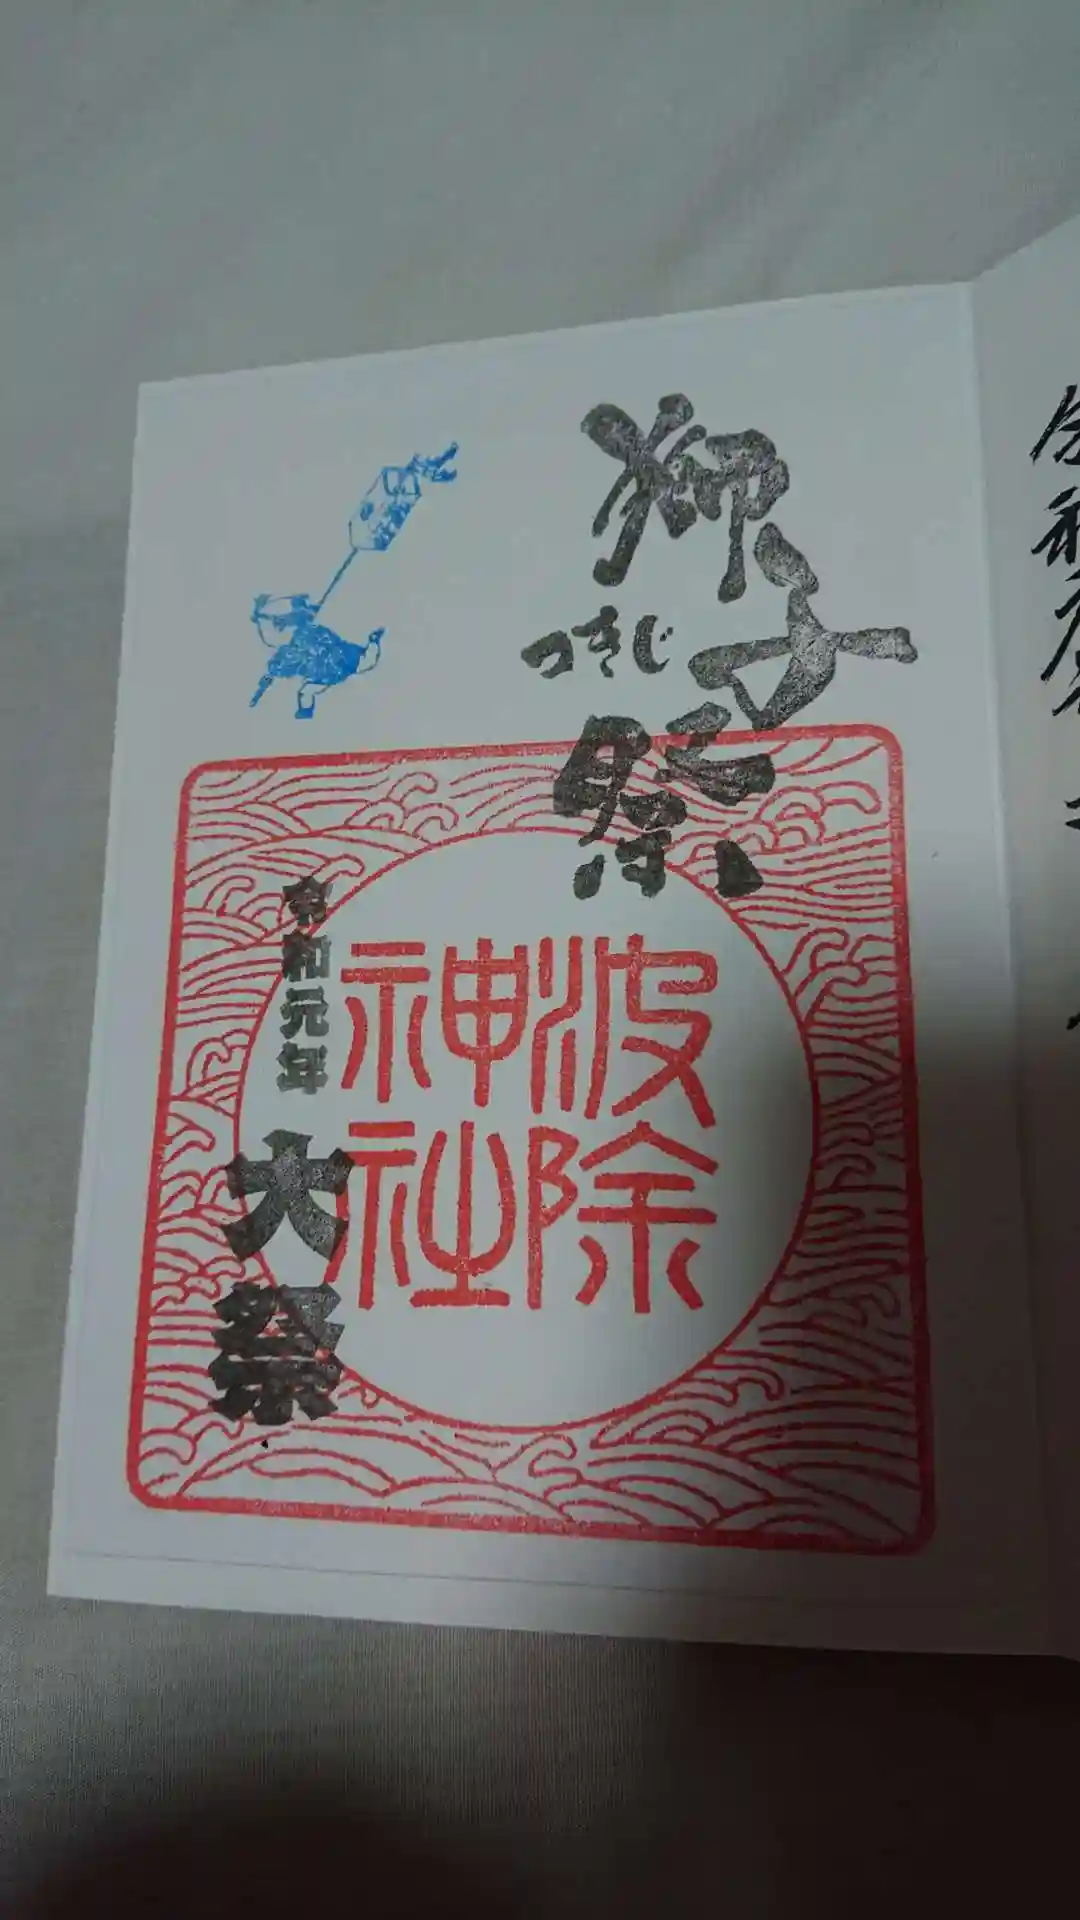 つきじ
獅子祭
波除
神社
令和元年
大祭
令和元年